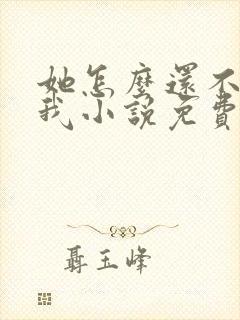 她怎麼還不
我小說免費
聶玉峰